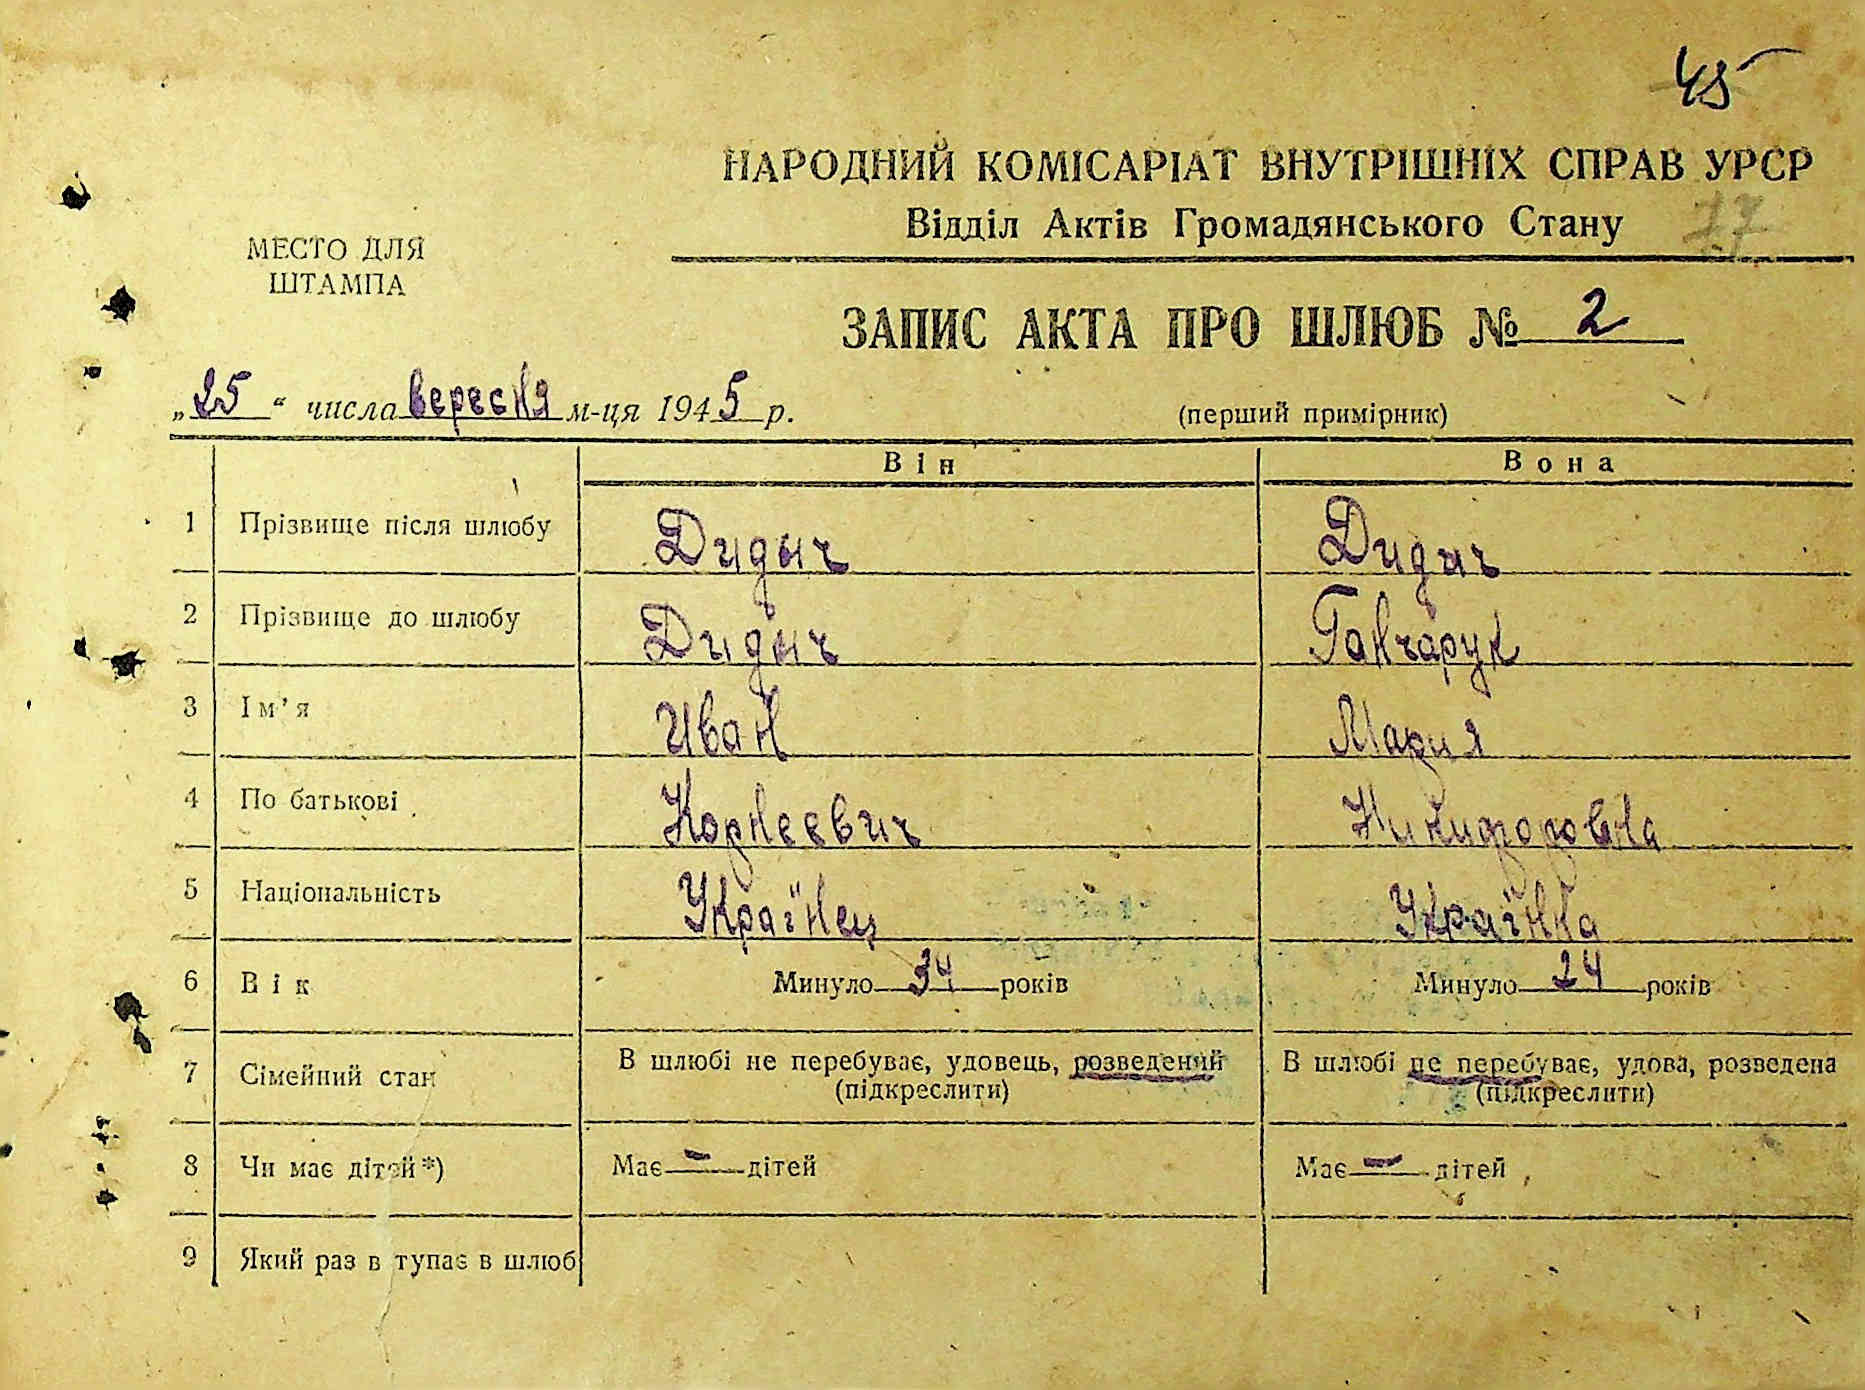 45
НАРОДНИЙ КОМІСАРІАТ ВНУТРІШНІХ СПРАВ УРСР
Відділ Актів Громадянського Стану
77
МЕСТО ДЛЯ
ШТАМПА
ЗАПИС АКТА ПРО ШЛЮБ № 2
„25“ числа вересня м-ця 1945 р.
(перший примірник)
Він Вона
1 Прізвище після шлюбу Дидыч Дидыч
2 Прізвище до шлюбу Дидыч Ганчарук
3 Ім'я Иван Мария
4 По батькові Корнеевич Никифоровна
5 Національність Українец Українка
6 Вік Минуло 34 років Минуло 24 років
7 Сімейний стан В шлюбі не перебуває, удовець, розведений В шлюбі не перебуває, удова, розведена
(підкреслити) (підкреслити)
8 Чи має дітей*) Має — дітей Має — дітей
9 Який раз в тупає в шлюб